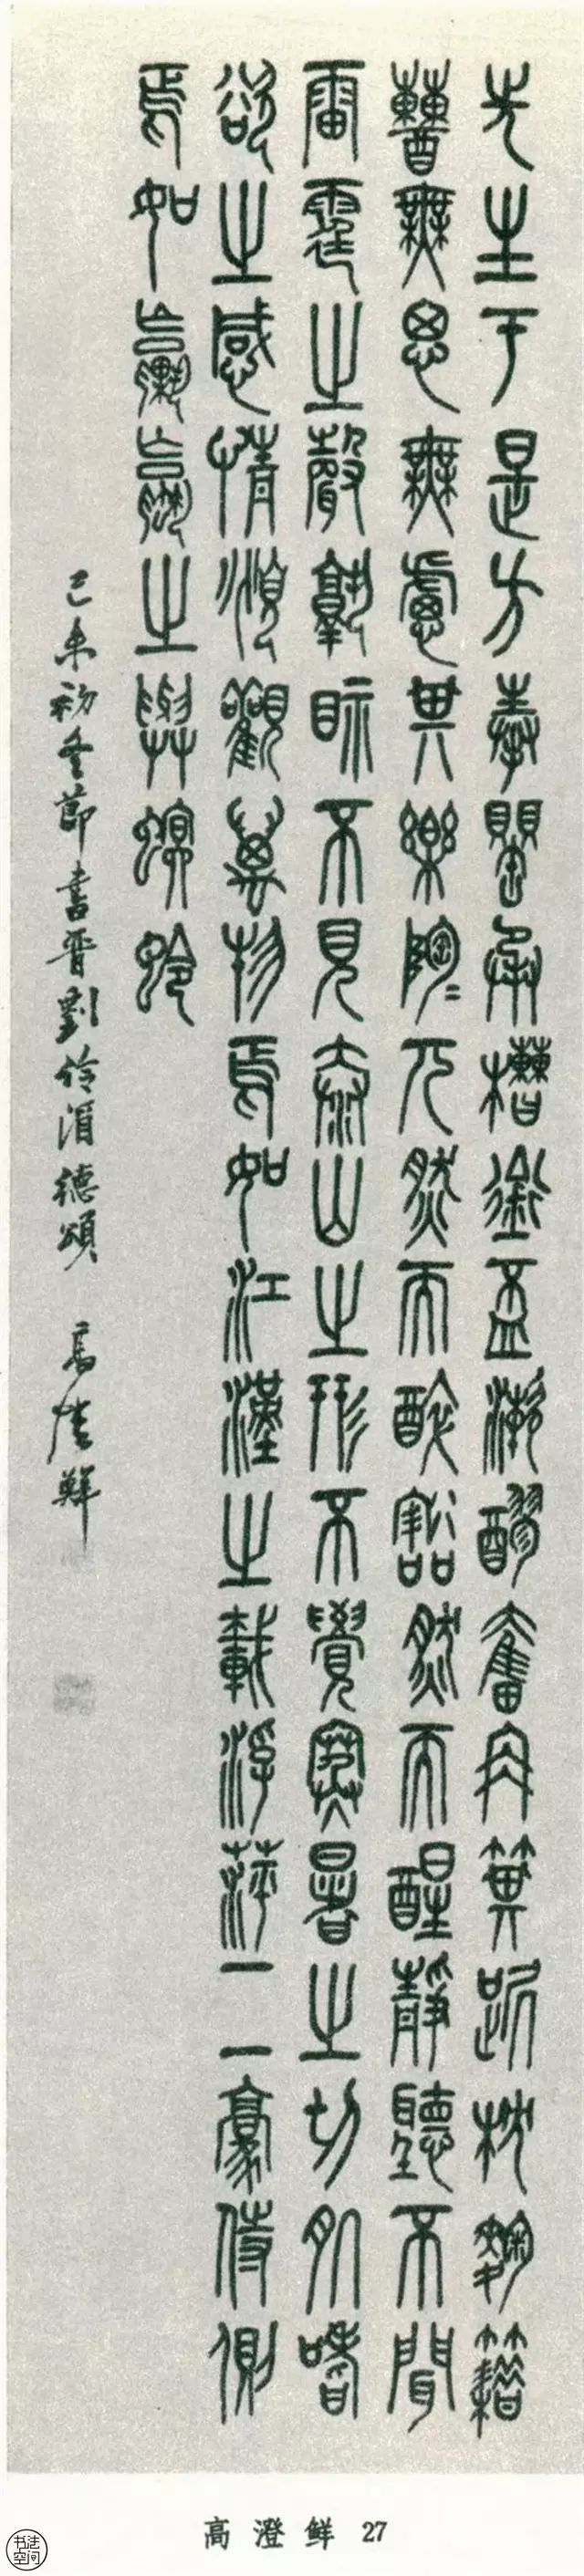 先生于是方奉罌承槽銜盃漱醪奮冉箕踞枕麴籍
醩無思無慮其樂陶〻兀然而醉豁然而醒靜聽不聞
雷霆之聲孰眂不見泰山之形不覺寒暑之切肌嗜
欲之感情俯觀萬物焉如江漢之載浮萍二豪侍側
焉如蜾蠃之與螟蛉
己未初冬節書晉劉伶酒德頌 高澄鮮
高澄鲜 27
书法空间